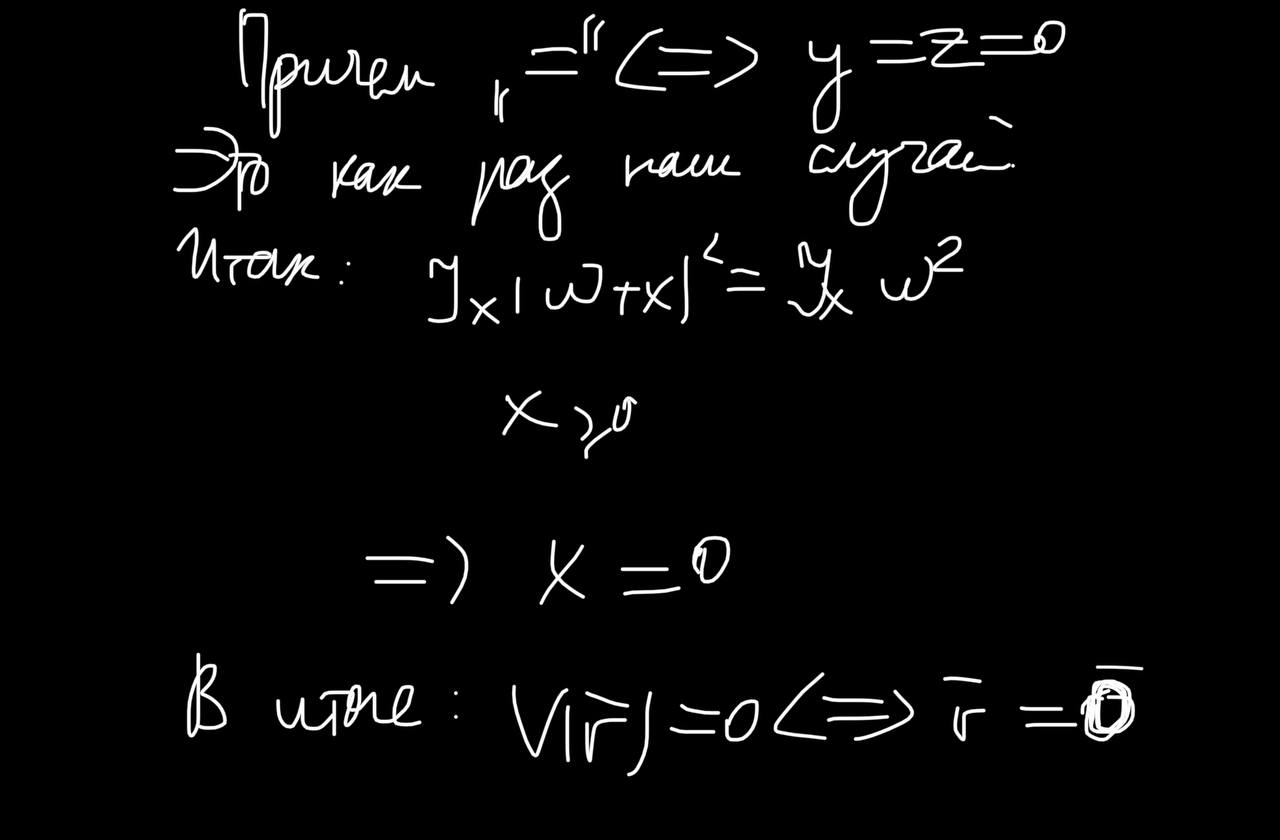 Причем "=" <=> y = z = 0
Это как раз наш случай.
Итак: J_x (ω + x)² = J_x ω²
x ⩾ 0
=> x = 0
В итоге: V(r̅) = 0 <=> r̅ = 0̅